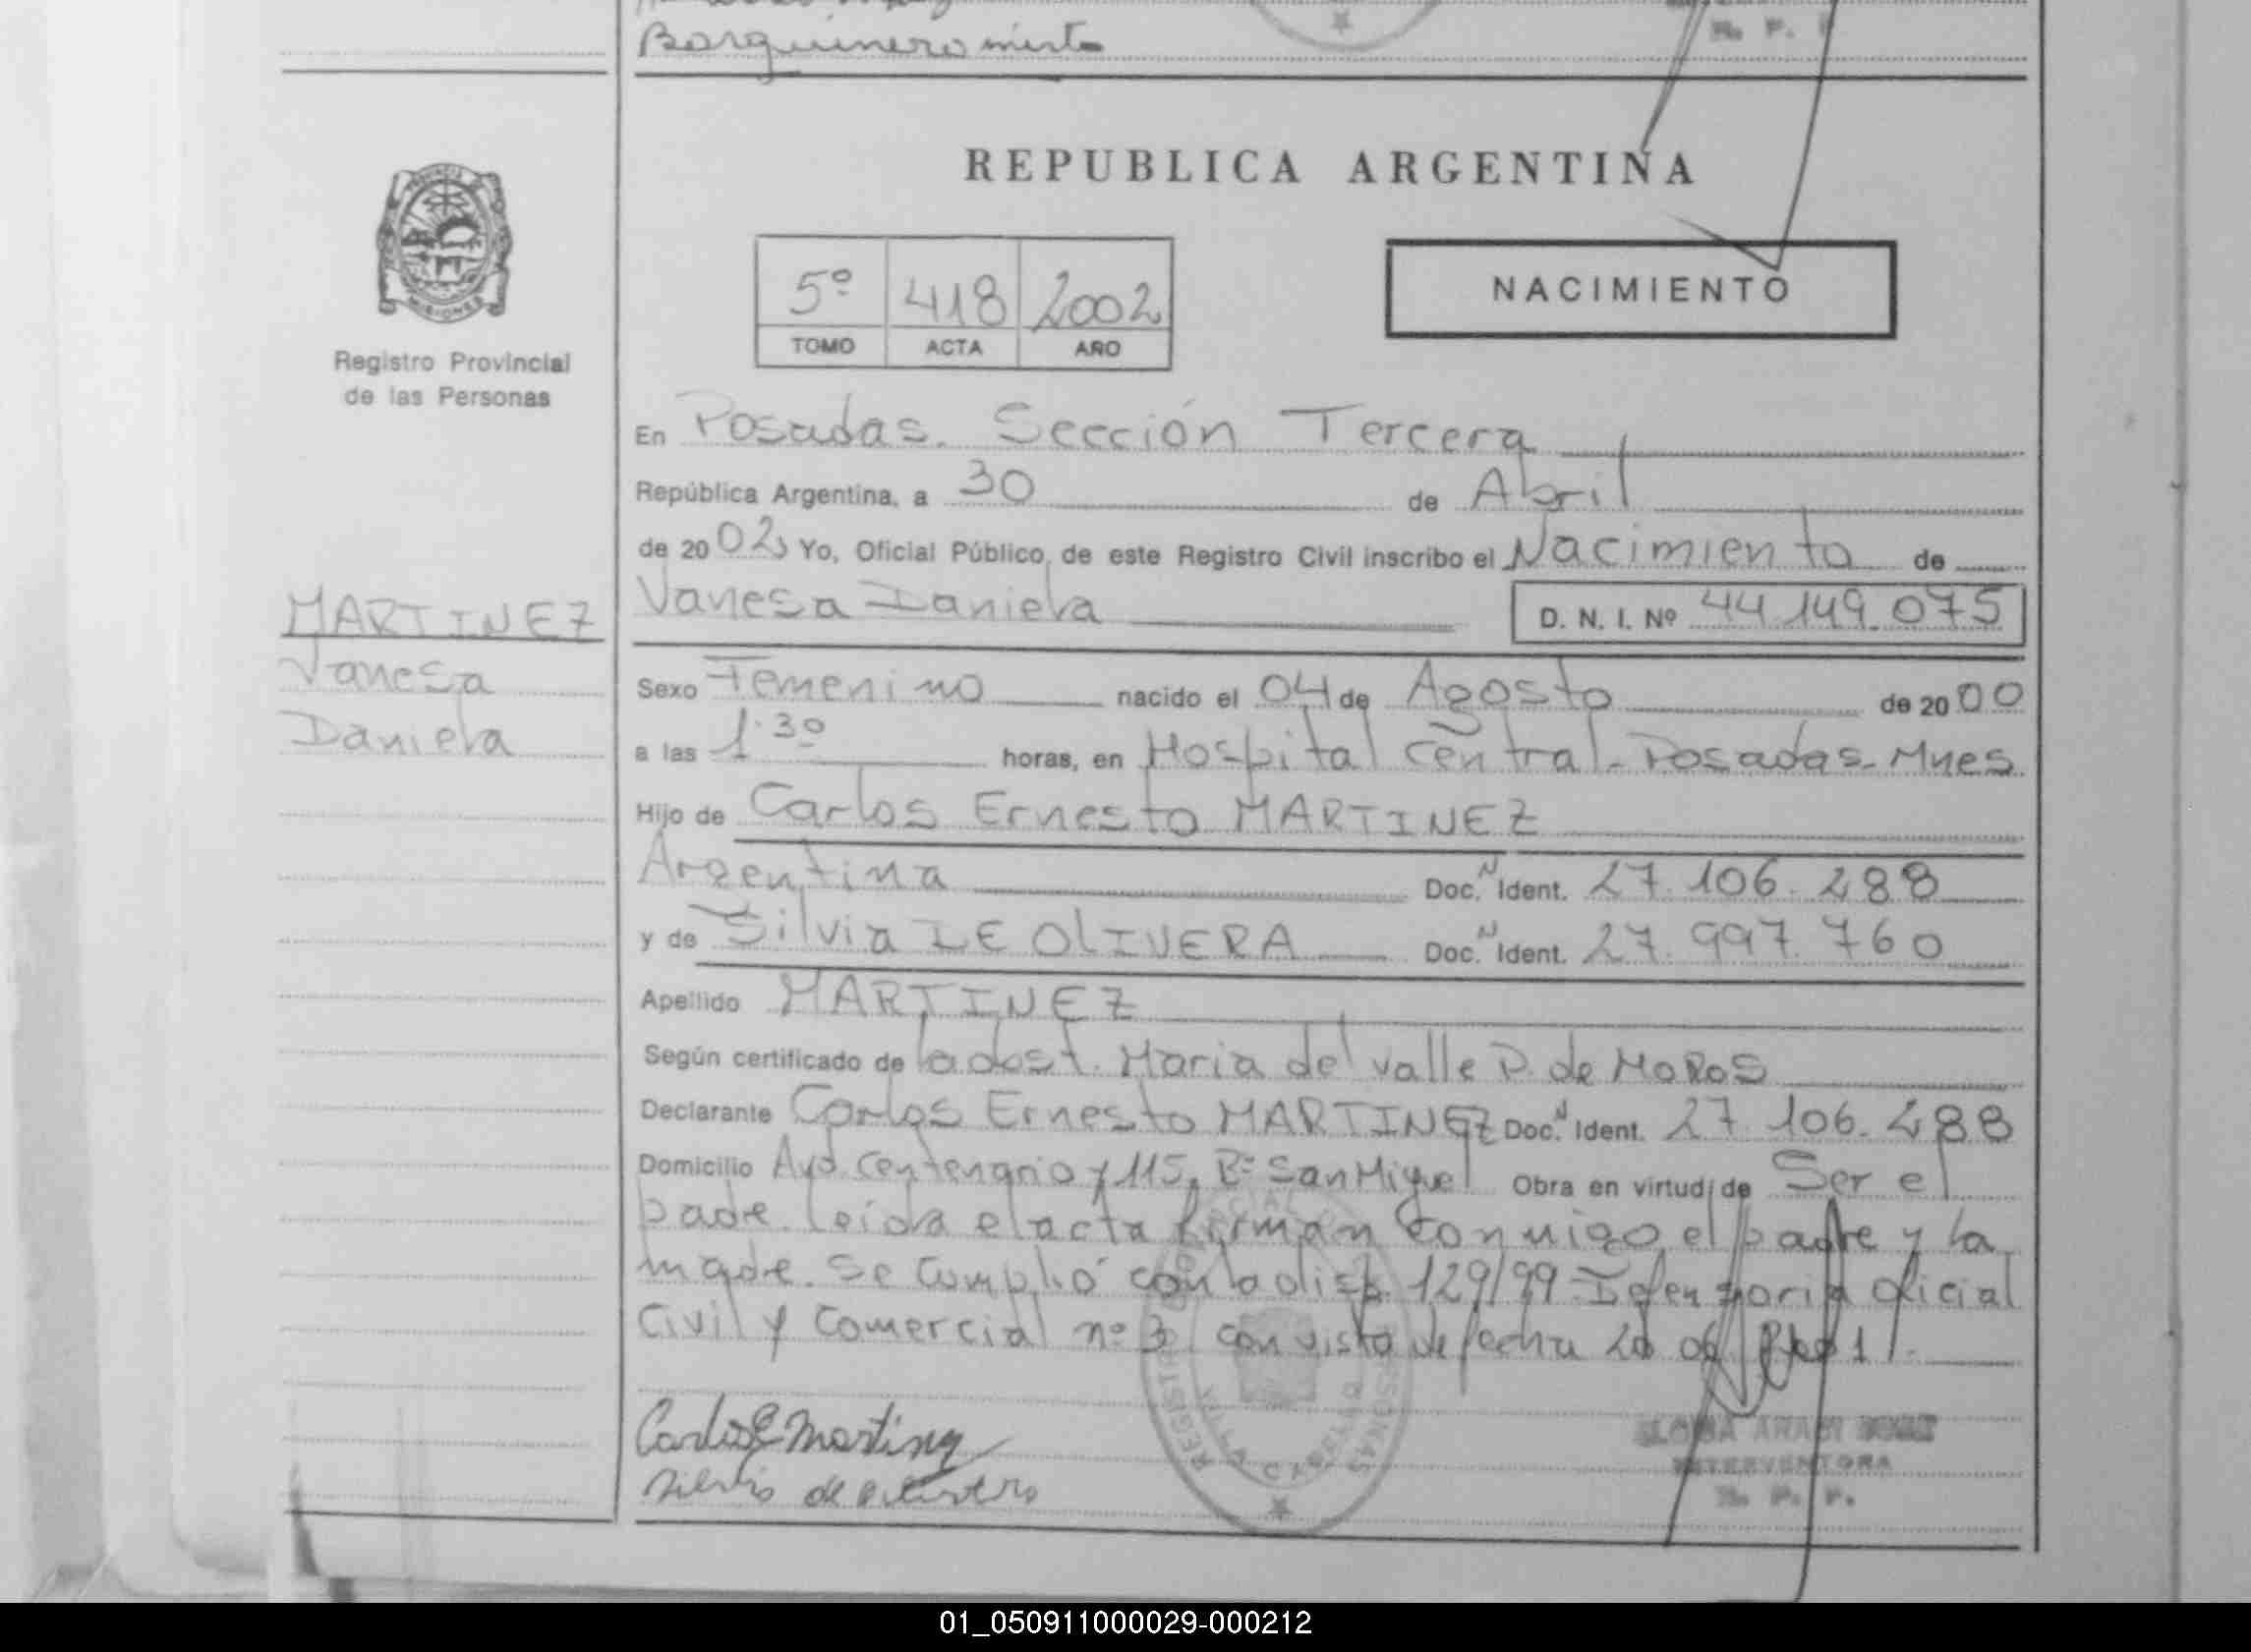 Barquinero mirta
REPUBLICA ARGENTINA
5º 418 2002
TOMO ACTA AÑO
NACIMIENTO
MISIONES
Registro Provincial
de las Personas
MARTINEZ
Vanesa
Daniela
En Posadas. Sección Tercera
República Argentina, a 30 de Abril
de 2002 Yo, Oficial Público, de este Registro Civil inscribo el Nacimiento de
Vanesa Daniela D. N. I. Nº 44.149.075
Sexo Femenino nacido el 04 de Agosto de 2000
a las 1.30 horas, en Hospital Central-Posadas-Mnes
Hijo de Carlos Ernesto MARTINEZ
Argentina Doc. N Ident. 27.106.288
y de Silvia DE OLIVERA Doc. N Ident. 27.997.760
Apellido MARTINEZ
Según certificado de la obst. Maria del valle P. de MOROS
Declarante Carlos Ernesto MARTINEZ Doc. N Ident. 27.106.288
Domicilio Avd. Centenario y 115, Bº San Miguel Obra en virtud de Ser el
padre. Leida el acta firman conmigo el padre y la
madre. Se cumplió con la disp. 129/99 Defensoria Oficial
Civil y Comercial nº 3 con vista de fecha
Carlos E Martinez
Silvia de
INTERVENTORA
R. P. P.
01_050911000029-000212